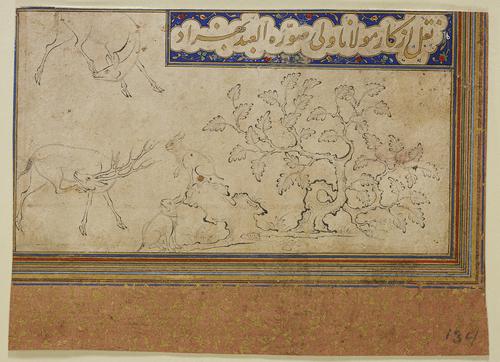 نقل از کار مولانا ولی صوّره العبد بهزاد
134